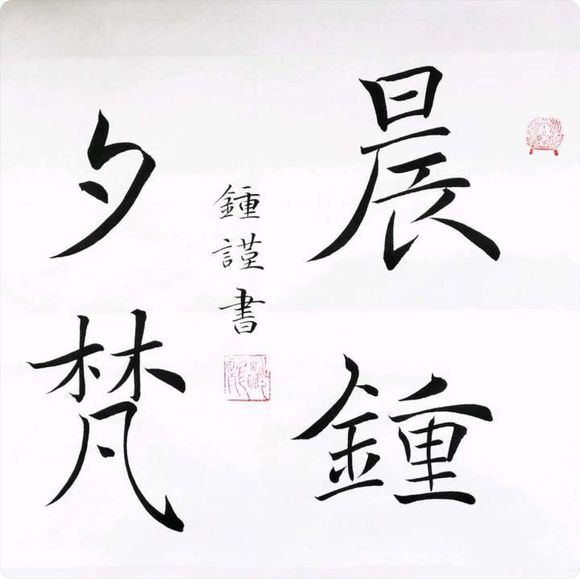 晨鍾
夕梵
鍾謹書